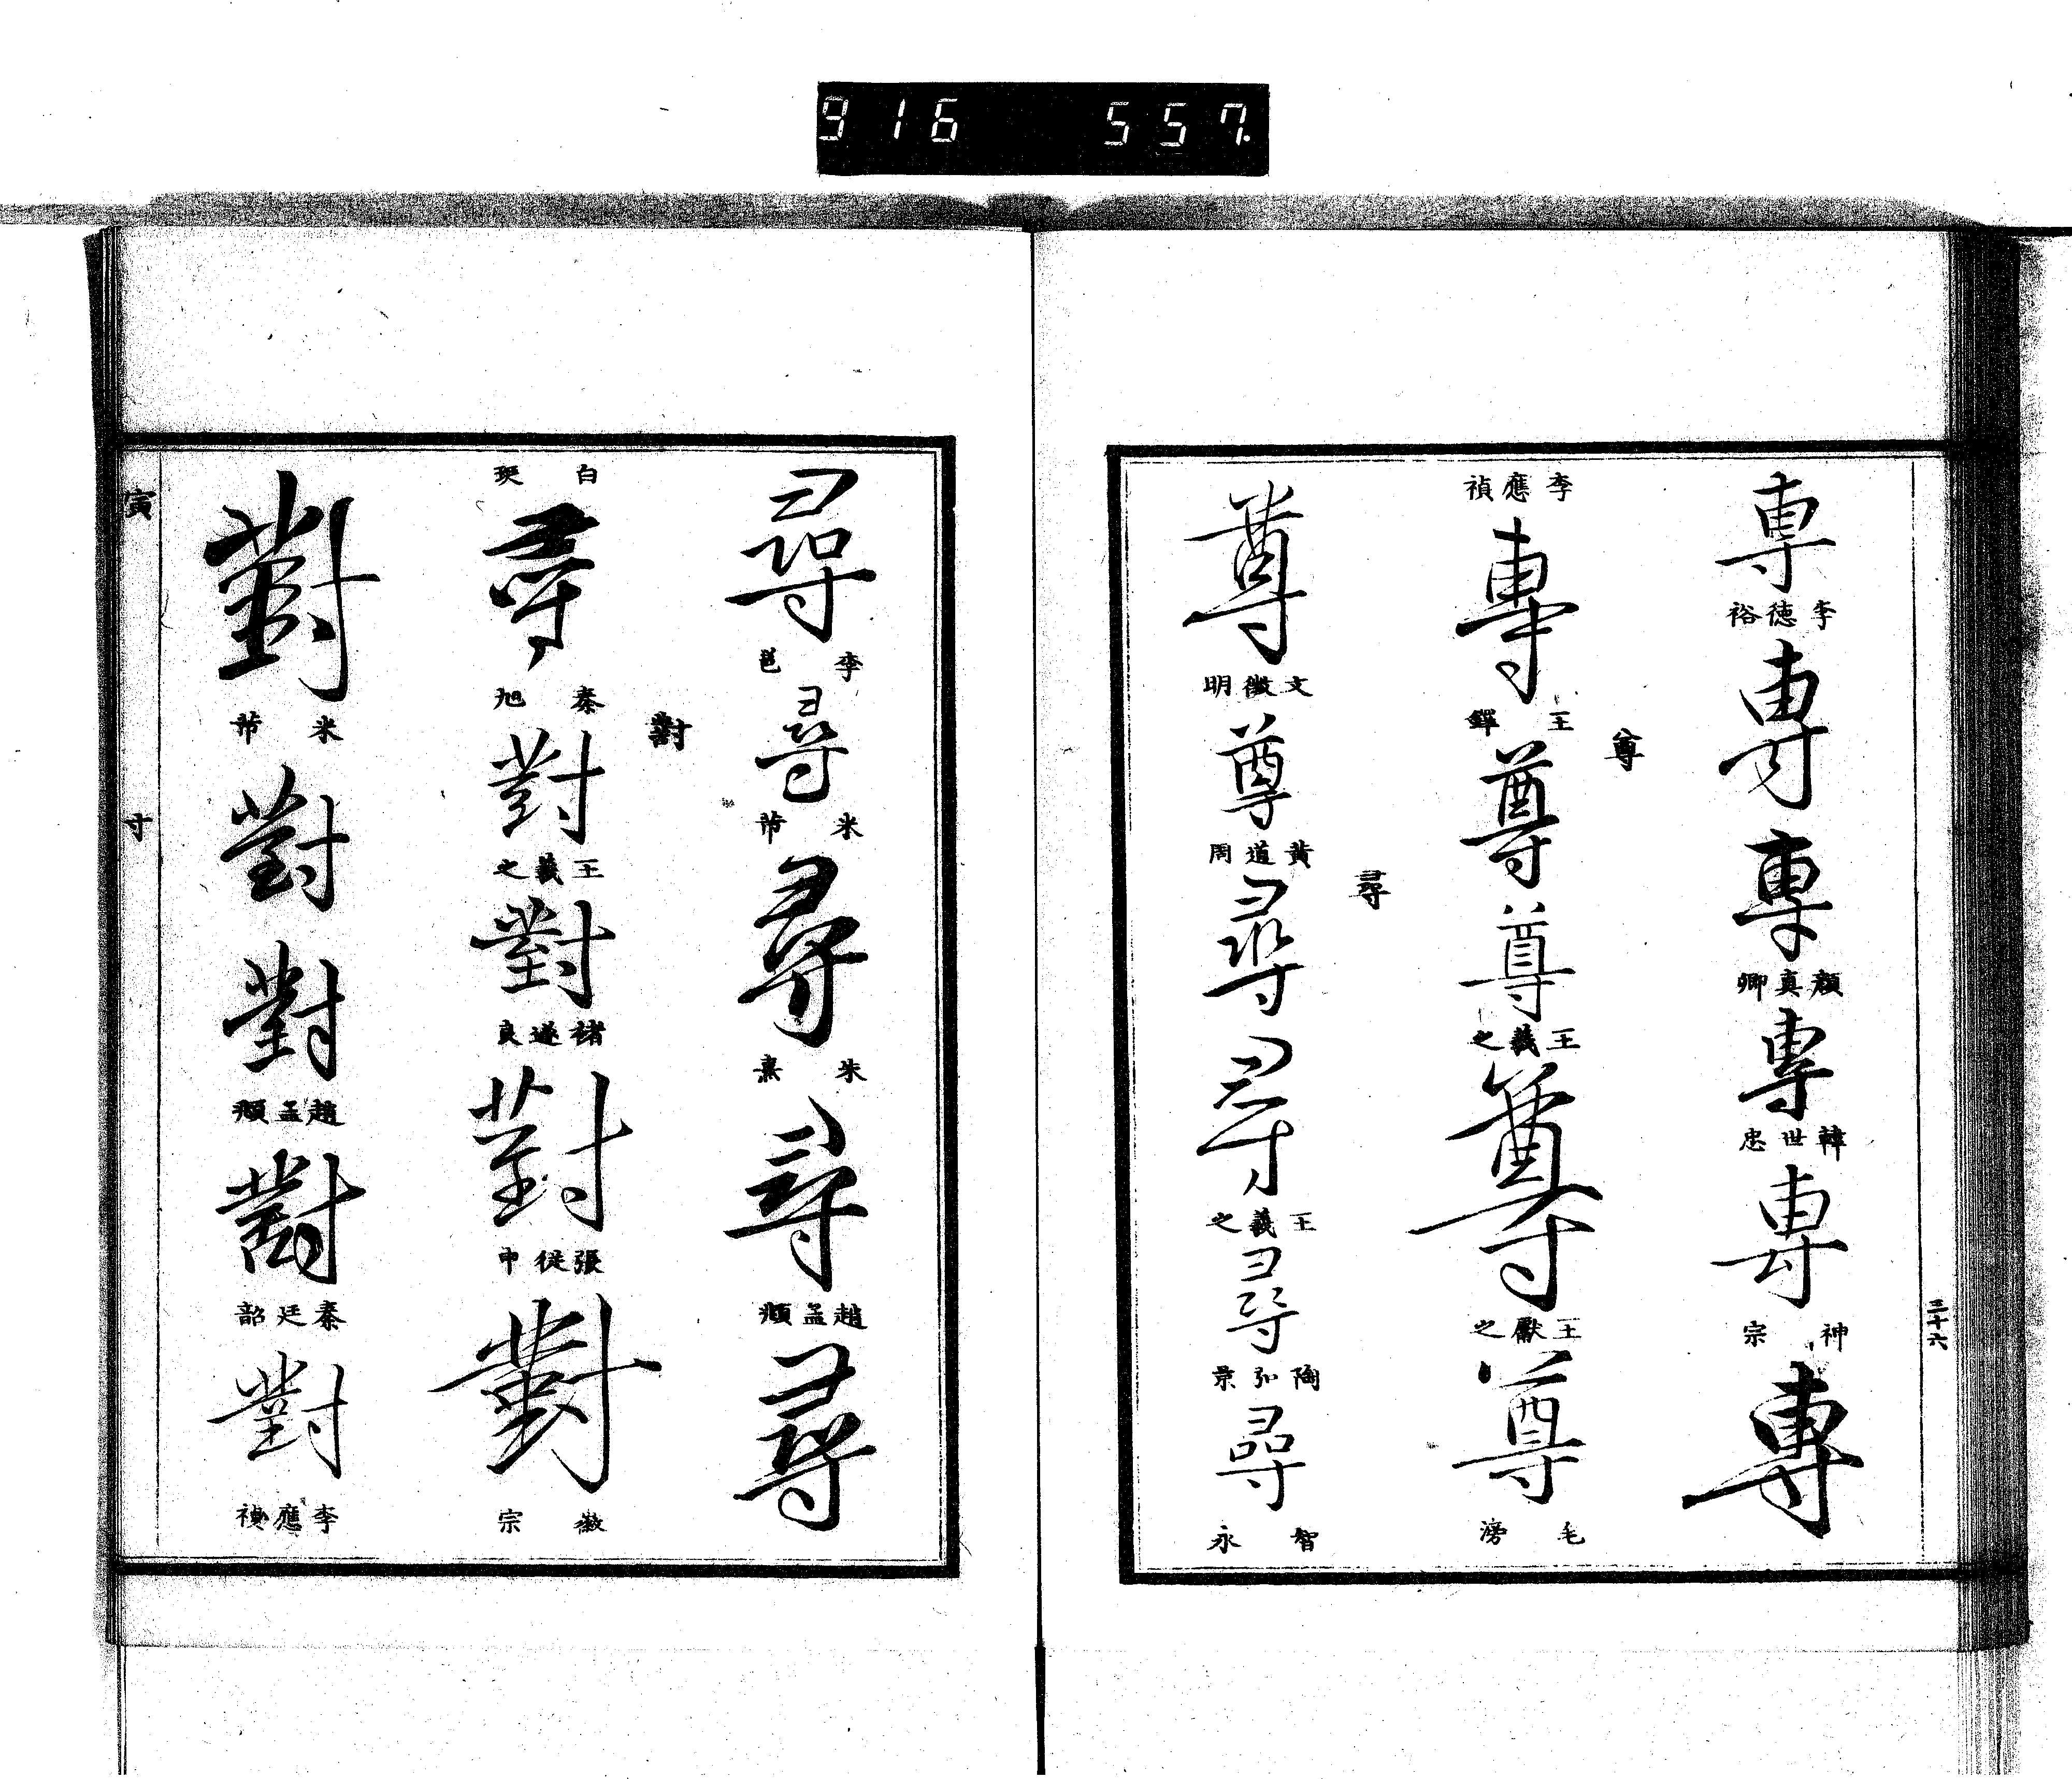 916 557.
三十六
專
李德裕
專
專
顏真卿
專
韓世忠
專
神宗
專
李應禎
專
王鐸
尊
尊
尊
王羲之
尊
王獻之
尊
毛滂
尊
文徵明
尊
黃道周
尋
尋
尋
王羲之
尋
陶弘景
尋
智永
尋
李邕
尋
米芾
尋
米熹
尋
趙孟頫
尋
白珽
尋
對
對
王羲之
對
褚遂良
對
張從申
對
徽宗
對
米芾
對
對
趙孟頫
對
對
李應禎
寅
寸